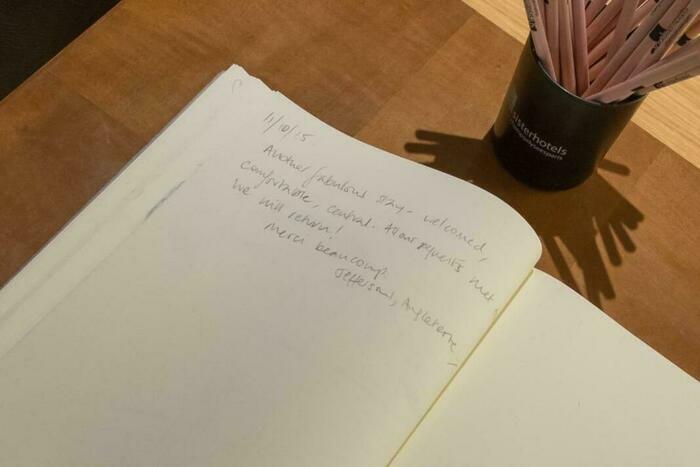 11/10/15
Another fabulous stay - welcomed,
comfortable, central. All our requests met.
We will return!
Merci beaucoup.
Jeffersons, Angleterre
sisterhotels